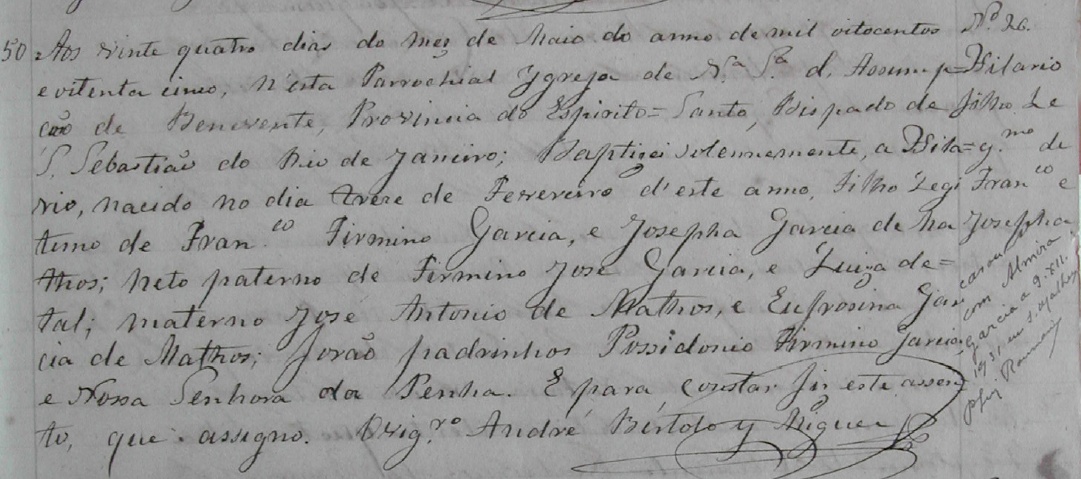 50 Aos vinte quatro dias do mez de Maio do anno de mil oitocentos
e oitenta cinco, n'esta Parrochial Ygreja de N.ª S.ª d. Assump=
ção de Benevente, Provincia do Espirito=Santo, Bispado de
S. Sebastião do Rio de Janeiro; Baptizei solennemente, a Hila=
rio, nacido no dia treze de Ferrereiro d'este anno, Filho Legi
timo de Fran.co Firmino Garcia, e Josepha Garcia de Ma
thos; neto paterno de Firmino José Garcia, e Luiza de=
tal; materno José Antonio de Mathos, e Eufrosina Gar
cia de Mathos; forão padrinhos Possidonio Firmino Garcia
e Nossa Senhora da Penha. E para constar fiz este assen
to, que assigno. Vrig.ro André Bértolo y
Nº 26.
Hilario
filho Le
g.mo de
Fran.co e
Josepha.
casou
com Almira
Garcia a 9.XII.
1931 em